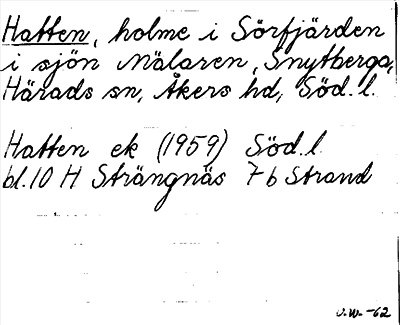 Hatten, holme i Sörfjärden
i sjön Mälaren, Snytberga,
Härads sn, Åkers hd, Söd. l.
Hatten ek (1959) Söd. l.
bl. 10 H Strängnäs 7 b Strand
J.W. -62